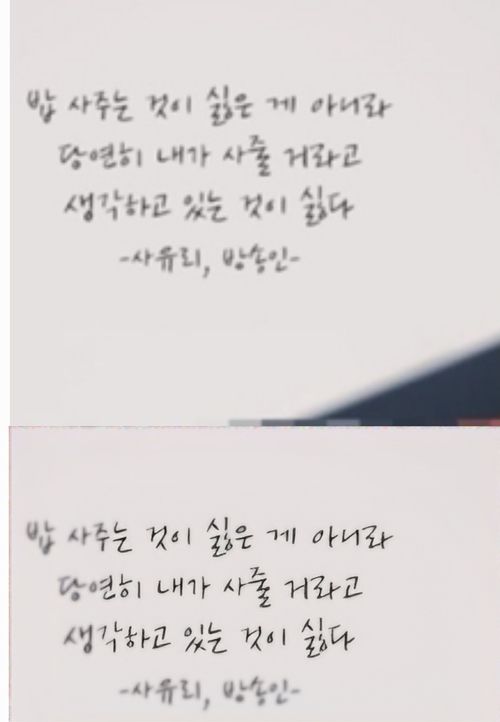 밥 사주는 것이 싫은 게 아니라
당연히 내가 사줄 거라고
생각하고 있는 것이 싫다
-사유리, 방송인-
밥 사주는 것이 싫은 게 아니라
당연히 내가 사줄 거라고
생각하고 있는 것이 싫다
-사유리, 방송인-